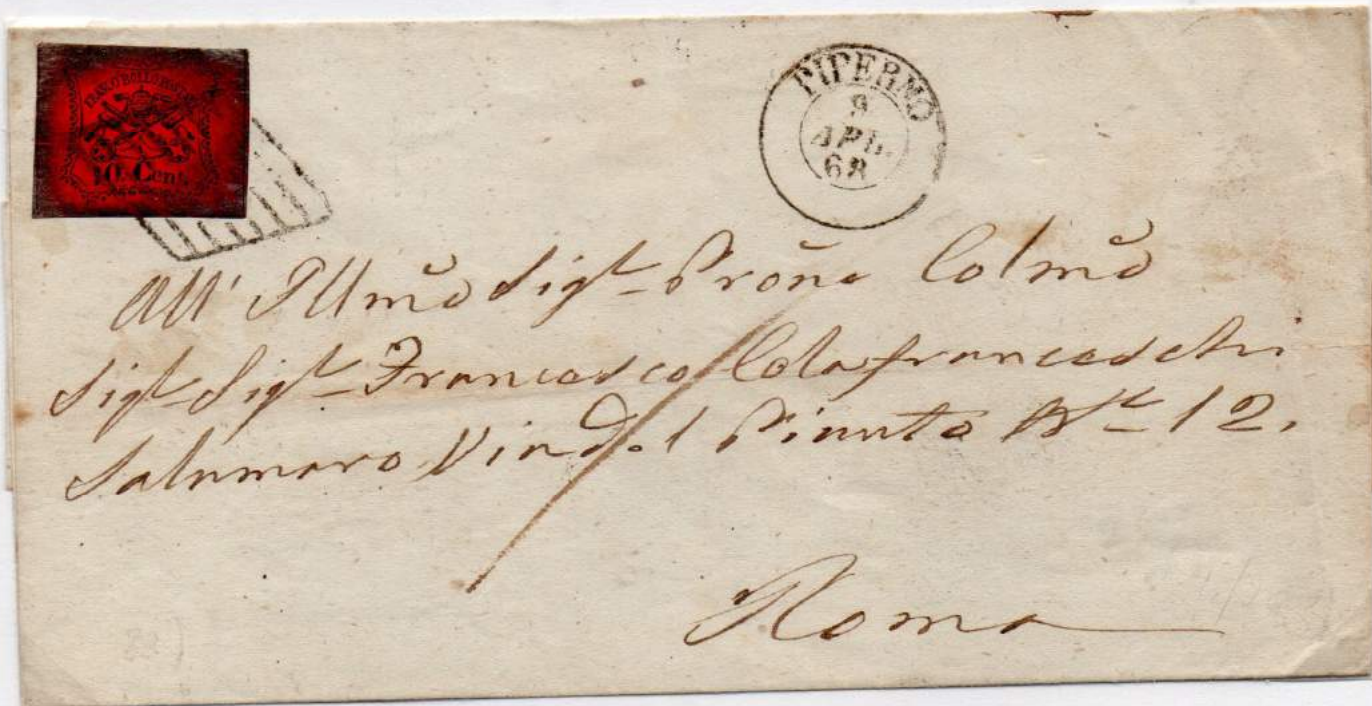 FRANCO BOLLO POSTALE
10. Cent.
PIPERNO
9
APR.
68
All' Illmo Sigr Prone Colmo
Sigr Sigr Francesco Colafranceschi
Salumaro Via del N° 12.
Roma